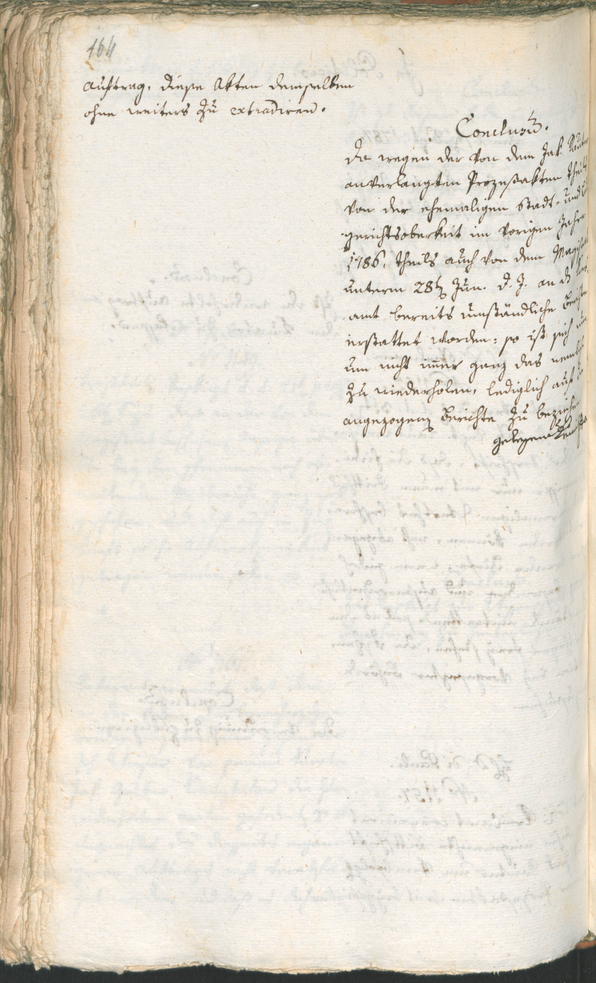 464
Auftrag, diese Akten demselben
ohne weiters zu extradiren.
Conclusū.
Da wegen der von dem Jak.
anverlangten Prozeßakten theils
von der ehemaligen Stadt- und
gerichtsobrkeit im vorigen Jahre
1786, theils auch von dem Magist
unterm 28tn Jun. d. J. an das
amt bereits umständliche Berichte
erstattet worden: so ist sich
um nicht immer ganz das neml
zu wiederholen, lediglich auf
angezogenen Berichte zu beziehen